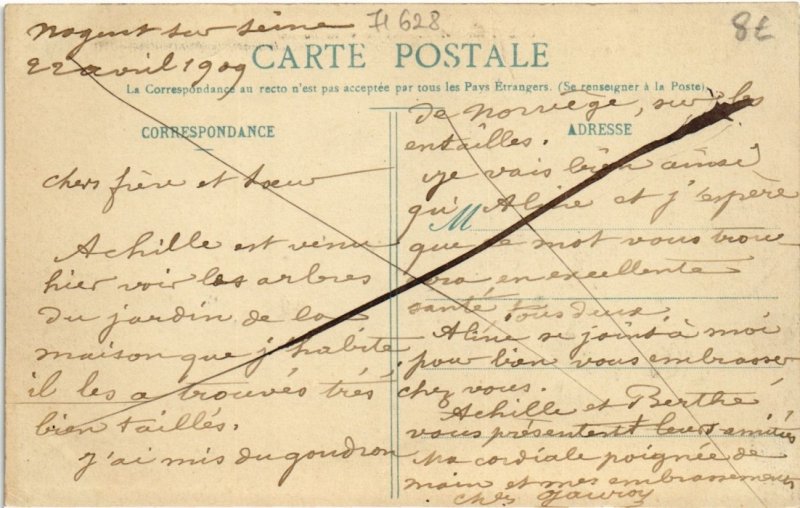 Nogent sur Seine
71628
8€
22 avril 1909
CARTE POSTALE
La Correspondance au recto n'est pas acceptée par tous les Pays Étrangers. (Se renseigner à la Poste)
CORRESPONDANCE
chers frère et sœur
Achille est venu
hier voir les arbres
du jardin de la
maison que j'habite,
il les a trouvés très
bien taillés.
J'ai mis du goudron
ADRESSE
M
de Norvège, sur les
entailles.
Je vais bien ainsi
qu'Aline et j'espère
que ce mot vous trou
vera en excellente
santé tous deux.
Aline se joint à moi
pour bien vous embrasser
chez vous.
Achille et Berthe
vous présentent leurs amitiés
Ma cordiale poignée de
main et mes embrassements